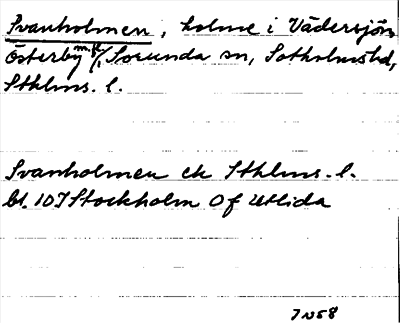 Svanholmen, holme i Vädersjön,
Österby m.fl., Sorunda sn, Sotholms hd,
Sthlms. l.
Svanholmen ek Sthlms. l.
bl. 10I Stockholm Of Utlida